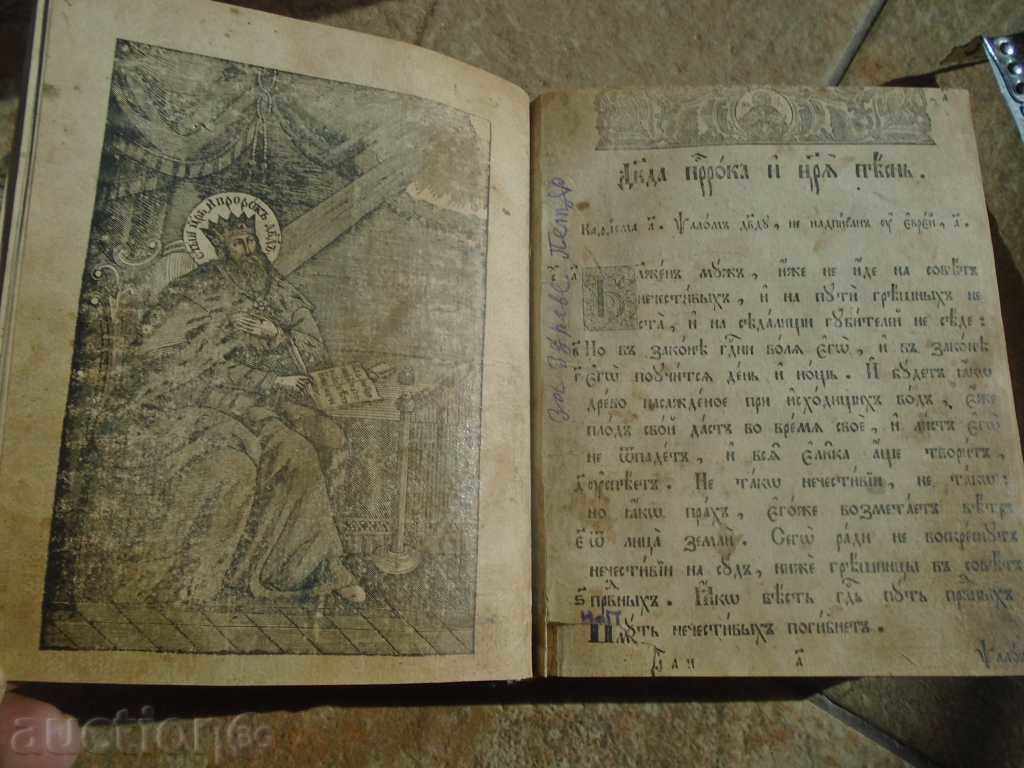 СТЫЙ ЦРЬ И ПРОРОКЪ ДВДЪ
Дв҃да прⷪ҇рока и҆ цр҃ѧ̀ пѣ́снь.
Каѳі́сма а҃. Ѱало́мъ дв҃ду, не надпи́санъ ᲂу҆ є҆врє́й, а҃.
Бл҃же́нъ мꙋ́жъ, и҆́же не и҆́де на совѣ́тъ
нечести́выхъ, и҆ на пꙋтѝ грѣ́шныхъ не
ста̀, и҆ на сѣда́лищи гꙋби́телей не сѣ́де:
Но въ зако́нѣ гд҇ни во́лѧ є҆гѡ̀, и҆ въ зако́нѣ
є҆гѡ̀ поꙋчи́тсѧ де́нь и҆ но́щь. И҆ бꙋ́детъ ꙗ҆́кѡ
дре́во насажде́ное при и҆схо́дищихъ во́дъ, є҆́же
пло́дъ сво́й да́стъ во вре́мѧ своѐ, и҆ ли́стъ є҆гѡ̀
не ѿпаде́тъ, и҆ всѧ̑ є҆ли̑ка а҆́ще твори́тъ,
ᲂу҆спѣ́етъ. Не та́кѡ нечести́вїи, не та́кѡ:
но ꙗ҆́кѡ пра́хъ, є҆го́же возмета́етъ вѣ́тръ
є҃ ѿ лица̀ землѝ. Сегѡ̀ ра́ди не воскре́снꙋтъ
нечести́вїи на сꙋ́дъ, нижѐ грѣ̑шницы въ совѣ́тъ
ѕ҃ првⷣныхъ. Ꙗ҆́кѡ вѣ́сть гдⷭ҇ь пꙋ́ть првⷣныхъ
и҆ пꙋ́ть нечести́выхъ поги́бнетъ.
а҃ Ѱало́
auction